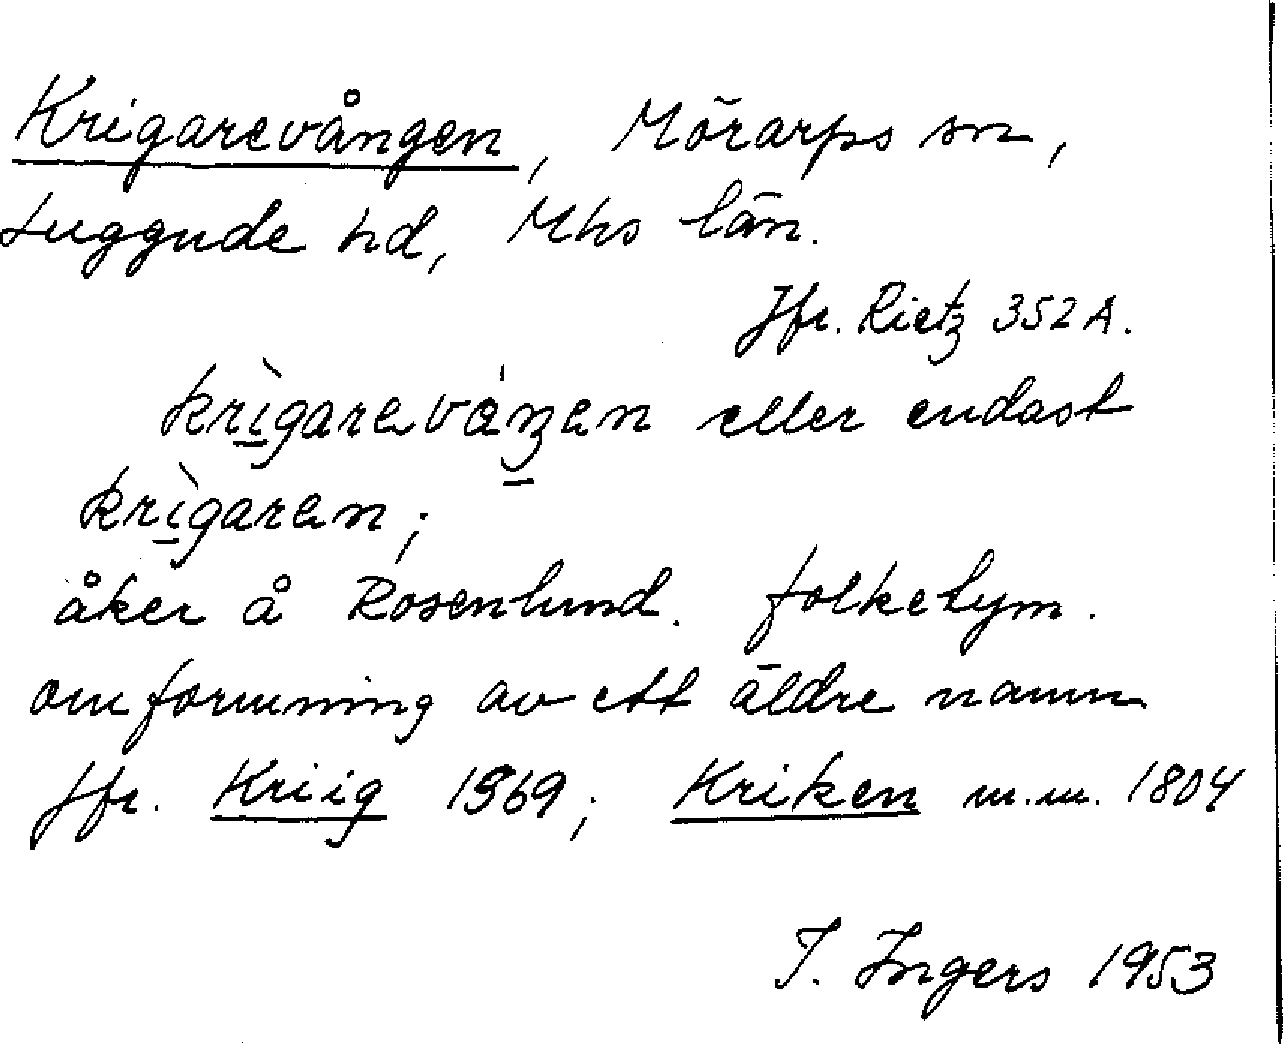 Krigarevången, Mörarps sn,
Luggude hd, Mhs län.
Jfr. Rietz 352 A.
krìgareváŋen eller endast
krìgaren;
åker å Rosenlund. folketym.
omformning av ett äldre namn
Jfr. Kriig 1569; Kriken m.m. 1804
I. Ingers 1953